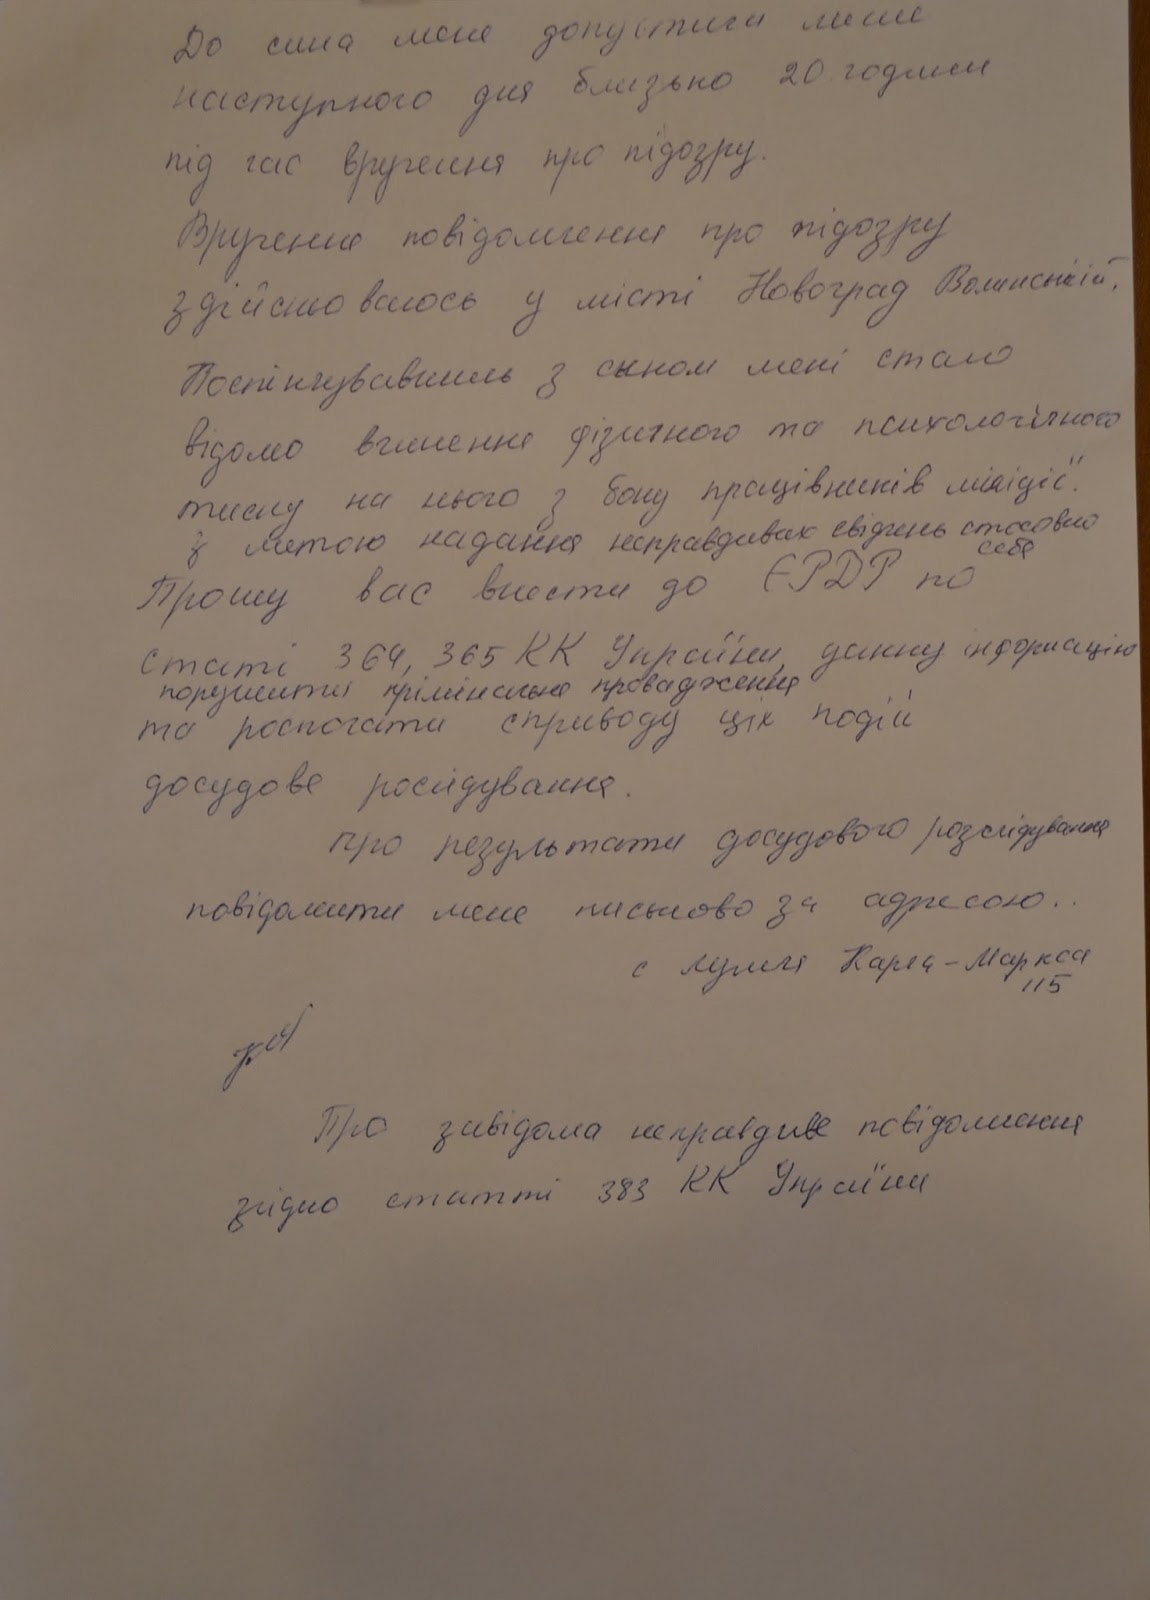 До сина мене допустили лише
наступного дня близько 20 години
під час вручення про підозру.
Вручення повідомлення про підозру
здійснювалось у місті Новоград Волинській.
Поспілкувавшись з сыном мені стало
відомо вчинення фізичного та психологічного
тиску на нього з боку працівників міліції.
з метою надання неправдивих свідчень стосовно
себе
Прошу вас внести до ЄРДР по
статі 364, 365 КК України, данну інформацію
порушити крімінальне провадження
та роспочати споиводу ціх подій
досудове росідування.
Про результати досудового розслідування
повідомити мене письмово за адресою..
с вулиця Карла-Маркса
115
Про завідома неправдиве повідомлення
згідно статті 383 КК України